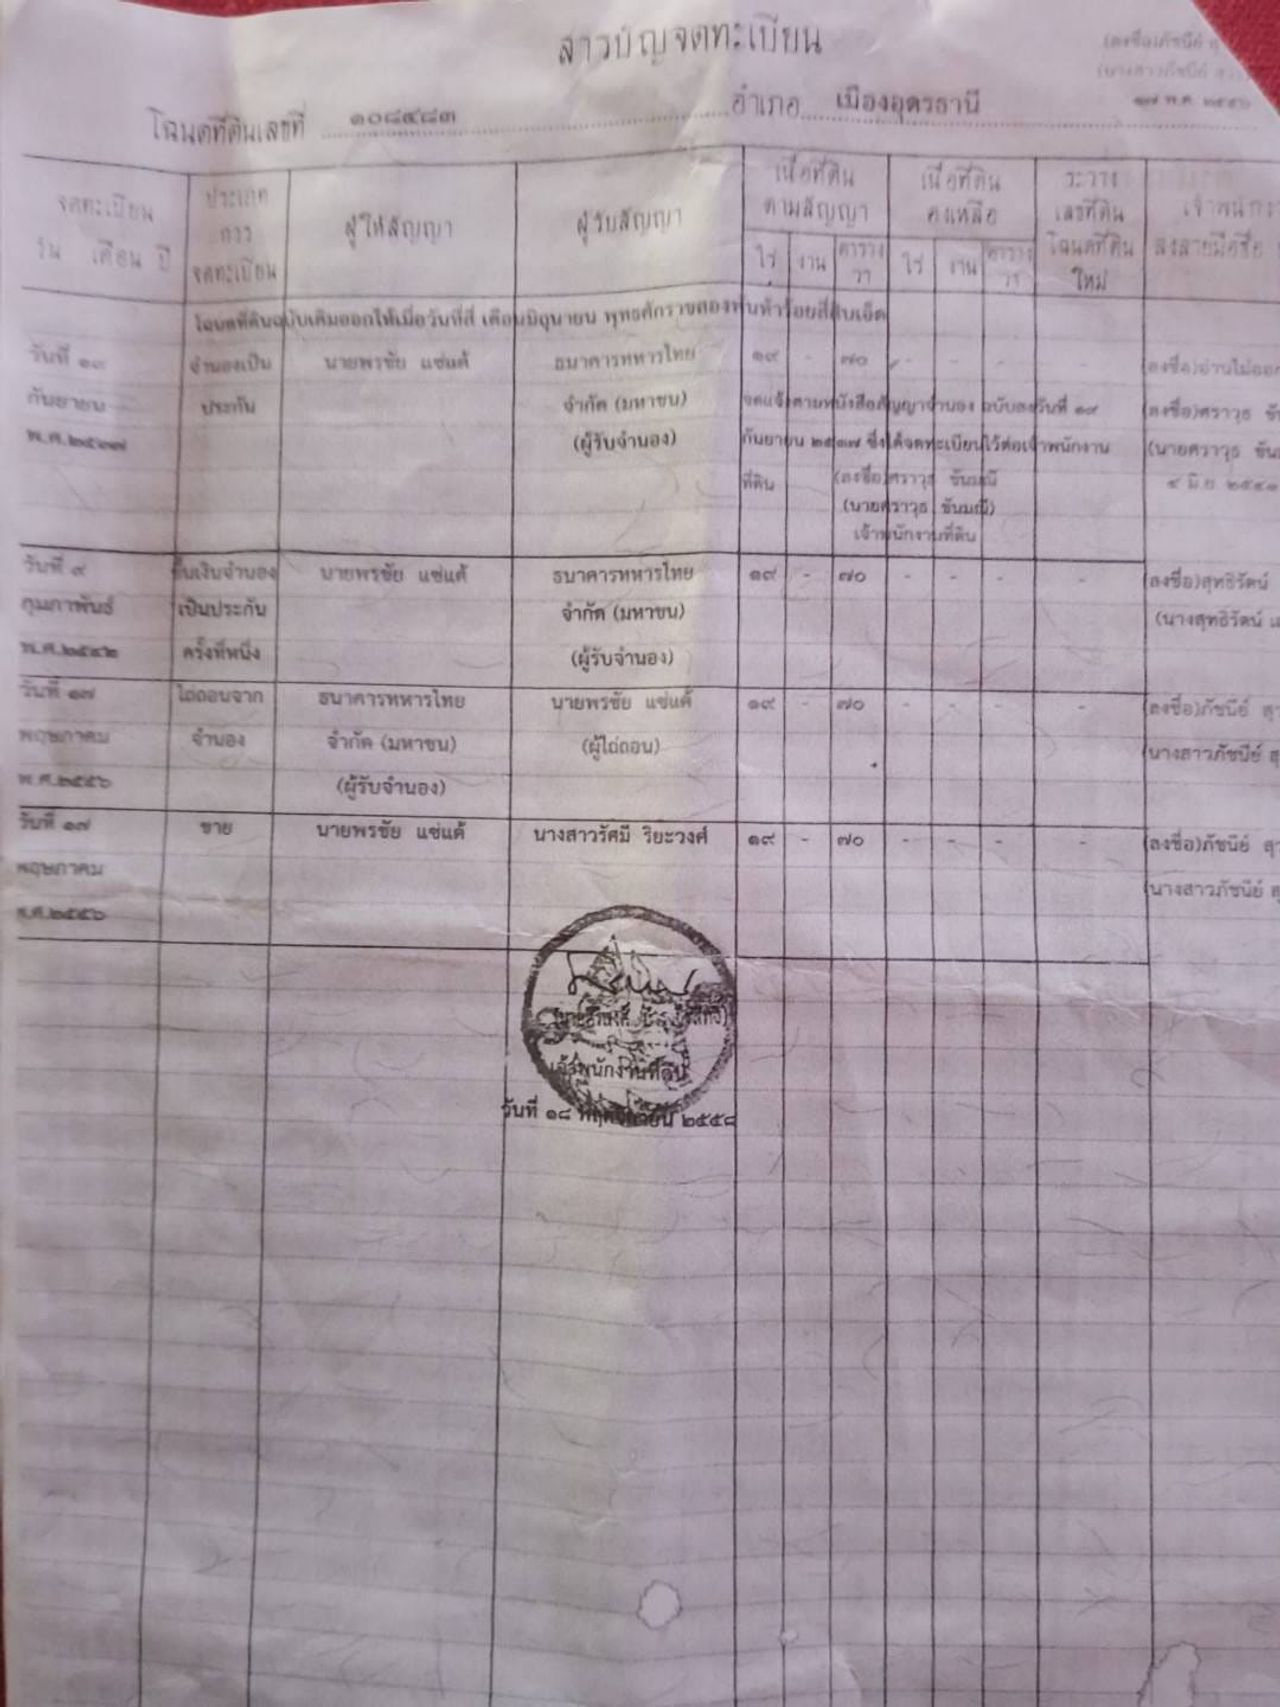 สารบัญจดทะเบียน
(ลงชื่อ)ภัชนีย์
(นางสาวภัชนีย์
๑๗ พ.ค. ๒๕๕๖
โฉนดที่ดินเลขที่ ๑๐๘๔๘๓ อำเภอ เมืองอุดรธานี
จดทะเบียน
วัน เดือน ปี
ประเภท
การ
จดทะเบียน
ผู้ให้สัญญา
ผู้รับสัญญา
เนื้อที่ดิน
ตามสัญญา
ไร่ งาน ตาราง
วา
เนื้อที่ดิน
คงเหลือ
ไร่ งาน ตาราง
วา
ระวาง
เลขที่ดิน
โฉนดที่ดิน
ใหม่
เจ้าพนักงาน
ลงลายมือชื่อ
โฉนดที่ดินฉบับเดิมออกให้เมื่อวันที่สี่ เดือนมิถุนายน พุทธศักราชสองพันห้าร้อยสี่สิบเอ็ด
วันที่ ๑๙ จำนองเป็น นายพรชัย แซ่แต้ ธนาคารทหารไทย ๑๙ - ๗๐ - - - - (ลงชื่อ)อ่านไม่ออก
กันยายน ประกัน จำกัด (มหาชน) จดแจ้งตามหนังสือสัญญาจำนอง ฉบับลงวันที่ ๑๙ (ลงชื่อ)ศราวุธ
พ.ศ. (ผู้รับจำนอง) กันยายน ซึ่งได้จดทะเบียนไว้ต่อเจ้าพนักงาน (นายศราวุธ
ที่ดิน (ลงชื่อ)ศราวุธ ขันมณี ๔ มิ.ย. ๒๕๔๑
(นายศราวุธ ขันมณี)
เจ้าพนักงานที่ดิน
วันที่ ๙ ขึ้นเงินจำนอง นายพรชัย แซ่แต้ ธนาคารทหารไทย ๑๙ - ๗๐ - - - - (ลงชื่อ)สุทธิรัตน์
กุมภาพันธ์ เป็นประกัน จำกัด (มหาชน) (นางสุทธิรัตน์
พ.ศ.๒๕๔๒ ครั้งที่หนึ่ง (ผู้รับจำนอง)
วันที่ ๑๗ ไถ่ถอนจาก ธนาคารทหารไทย นายพรชัย แซ่แต้ ๑๙ - ๗๐ - - - - (ลงชื่อ)ภัชนีย์
พฤษภาคม จำนอง จำกัด (มหาชน) (ผู้ไถ่ถอน) (นางสาวภัชนีย์
พ.ศ.๒๕๕๖ (ผู้รับจำนอง)
วันที่ ๑๗ ขาย นายพรชัย แซ่แต้ นางสาวรัศมี ริยะวงศ์ ๑๙ - ๗๐ - - - - (ลงชื่อ)ภัชนีย์
พฤษภาคม (นางสาวภัชนีย์
พ.ศ.๒๕๕๖
เจ้าพนักงานที่ดิน
วันที่ ๑๘ พฤศจิกายน ๒๕๕๘